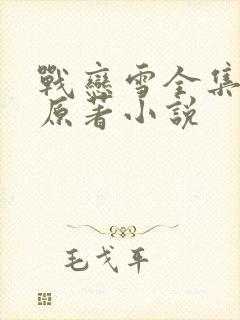 戰戀雪全集
原著小説
毛戈平